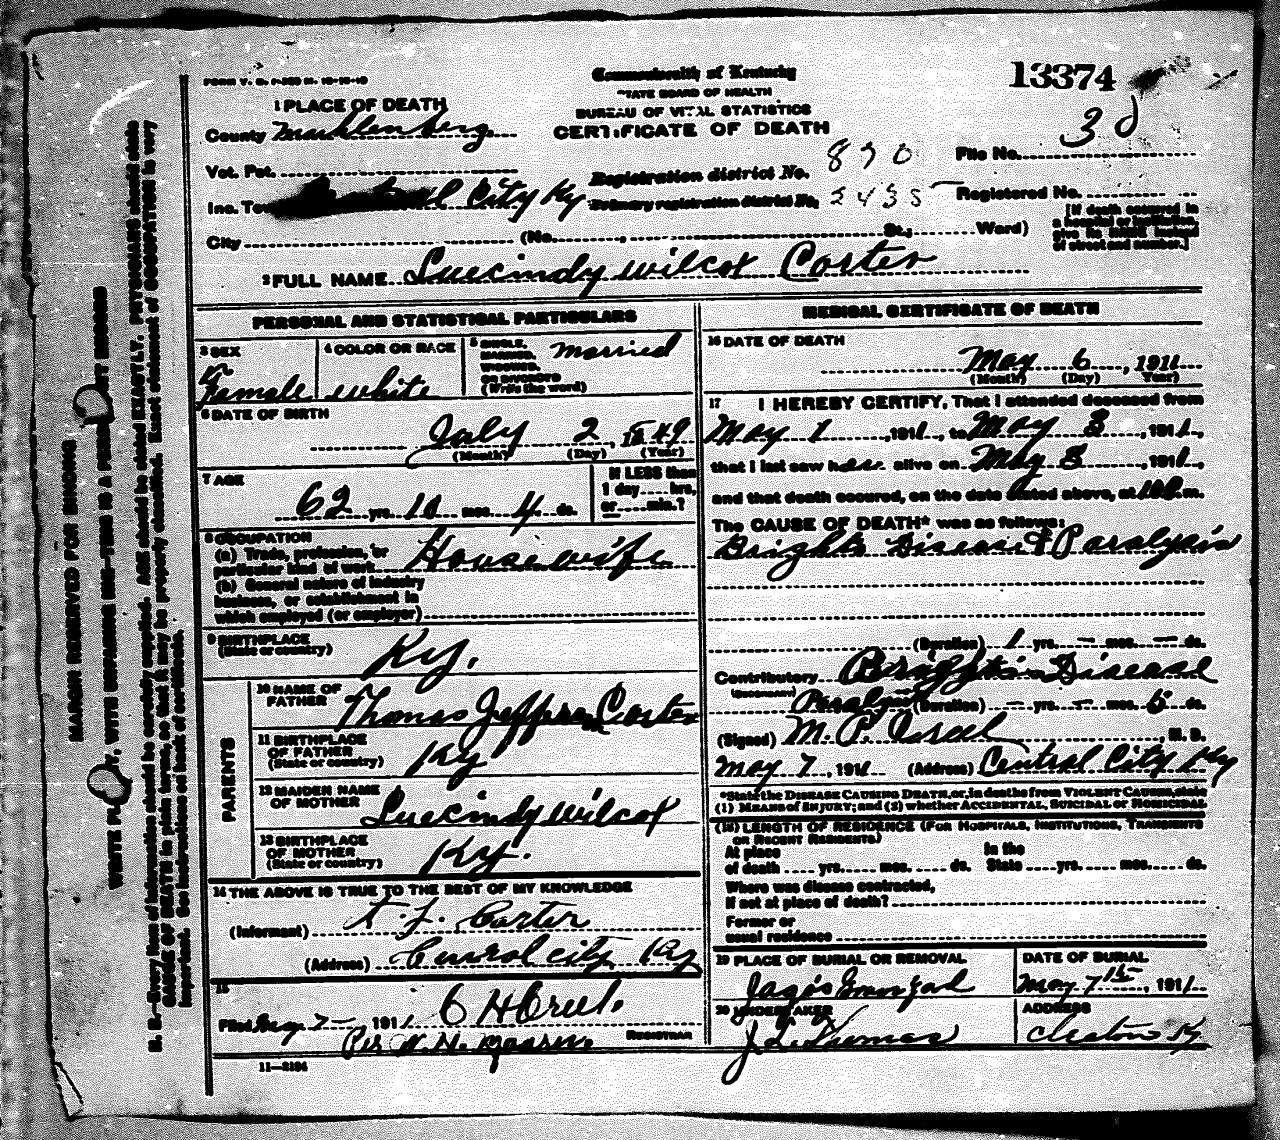 FORM V. S. 1-
13374
Commonwealth of Kentucky
STATE BOARD OF HEALTH
BUREAU OF VITAL STATISTICS
CERTIFICATE OF DEATH
1 PLACE OF DEATH
County Muchlenberg
3 d
File No.
Vot. Pct.
Registration district No. 890
Inc. Town Central City Ky
Primary registration district No. 2435
Registered No.
[If death occurred in
a hospital or institution,
give its NAME instead
of street and number.]
City (No. , St.; Ward)
2 FULL NAME Luecindy Wilcox Carter
PERSONAL AND STATISTICAL PARTICULARS
3 SEX
Female
4 COLOR OR RACE
white
5 SINGLE,
MARRIED,
WIDOWED,
OR DIVORCED
(Write the word)
married
6 DATE OF BIRTH
July 2, 1849
(Month) (Day) (Year)
7 AGE
62 yrs. 10 mos. 4 ds.
If LESS than
1 day hrs.
or min.?
8 OCCUPATION
(a) Trade, profession, or
particular kind of work House wife
(b) General nature of industry
business, or establishment in
which employed (or employer)
9 BIRTHPLACE
(State or country)
Ky.
PARENTS
10 NAME OF
FATHER
Thomas Jefferson Carter
11 BIRTHPLACE
OF FATHER
(State or country)
Ky
12 MAIDEN NAME
OF MOTHER
Luecindy Wilcox
13 BIRTHPLACE
OF MOTHER
(State or country)
Ky.
14 THE ABOVE IS TRUE TO THE BEST OF MY KNOWLEDGE
(Informant) T. J. Carter
(Address) Cenrol city Ky
15
Filed May 7 1911
REGISTRAR
Per W. H.
11—3184
MEDICAL CERTIFICATE OF DEATH
16 DATE OF DEATH
May 6, 1911
(Month) (Day) (Year)
17 I HEREBY CERTIFY, That I attended deceased from
May 1, 1911, to May 3, 1911,
that I last saw her alive on May 3, 1911,
and that death occured, on the date stated above, at m.
The CAUSE OF DEATH* was as follows:
Brights Disease & Paralysis
(Duration) 1 yrs. — mos. — ds.
Contributory Brights Disease
(Secondary)
Paralysis (Duration) — yrs. — mos. 6 ds.
(Signed) M. P. Creel, M. D.
May 7, 1911 (Address) Central City Ky
*State the DISEASE CAUSING DEATH, or, in deaths from VIOLENT CAUSES, state
(1) MEANS OF INJURY; and (2) whether ACCIDENTAL, SUICIDAL or HOMICIDAL
(18) LENGTH OF RESIDENCE (FOR HOSPITALS, INSTITUTIONS, TRANSIENTS
OR RECENT RESIDENTS)
At place In the
of death yrs. mos. ds. State yrs. mos. ds.
Where was disease contracted,
if not at place of death?
Former or
usual residence
19 PLACE OF BURIAL OR REMOVAL
DATE OF BURIAL
May 7, 1911
20 UNDERTAKER
J. L. Thomas
ADDRESS
Cleaton Ky
MARGIN RESERVED FOR BINDING
WRITE PLAINLY, WITH UNFADING INK—THIS IS A PERMANENT RECORD
N. B.—Every item of information should be carefully supplied. AGE should be stated EXACTLY. PHYSICIANS should state
CAUSE OF DEATH in plain terms, so that it may be properly classified. Exact statement of OCCUPATION is very
important. See instructions on back of certificate.